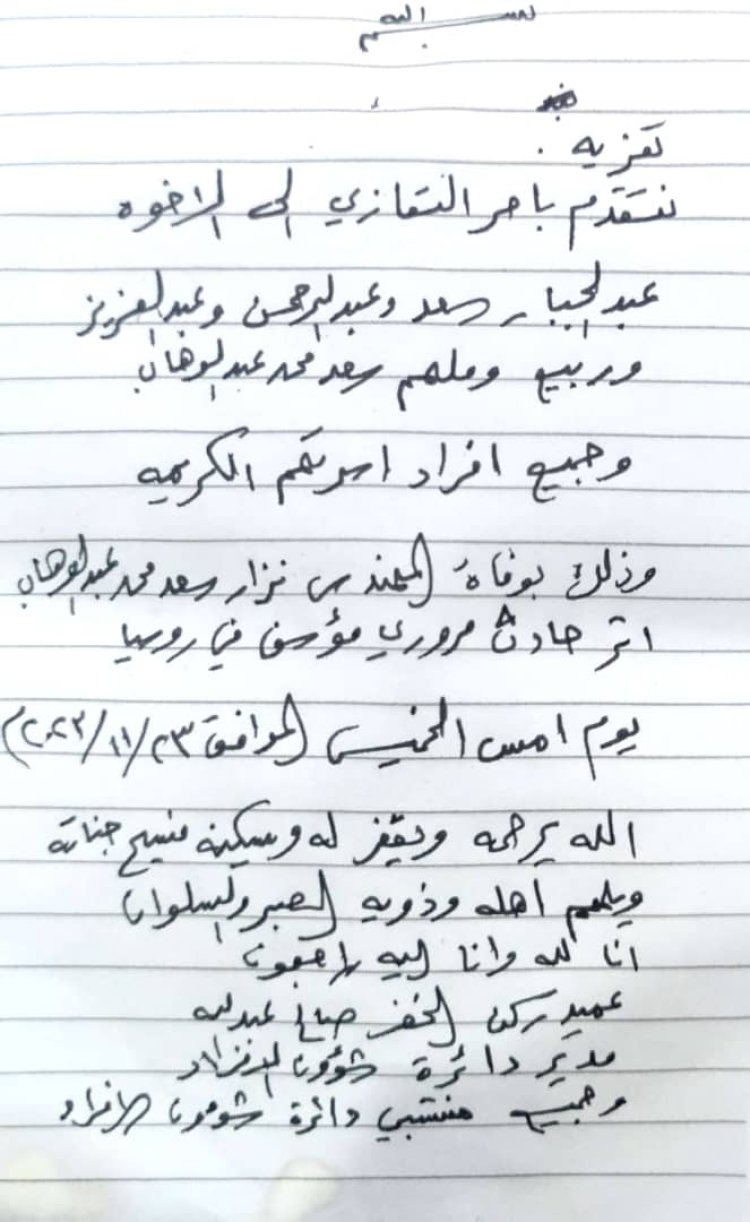 بسم الله
تعزيه
نتقدم باحر التعازي الى الاخوه
عبدالجبار سعد وعبدالرحمن وعبدالعزيز
وربيع وملهم سعد محمد عبدالوهاب
وجميع افراد اسرتهم الكريمه
وذلك بوفاة المهندس نزار سعد محمد عبدالوهاب
اثر حادث مروري مؤسف في روسيا
يوم امس الخميس الموافق ٢٠٢٣/١١/٢٣م
الله يرحمه ويغفر له ويسكنه فسيح جناته
ويلهم اهله وذويه الصبر والسلوان
انا لله وانا اليه راجعون
عميد ركن الخضر صالح عبدلله
مدير دائرة شؤون الافراد
وجميع منتسبي دائرة شؤون الافراد